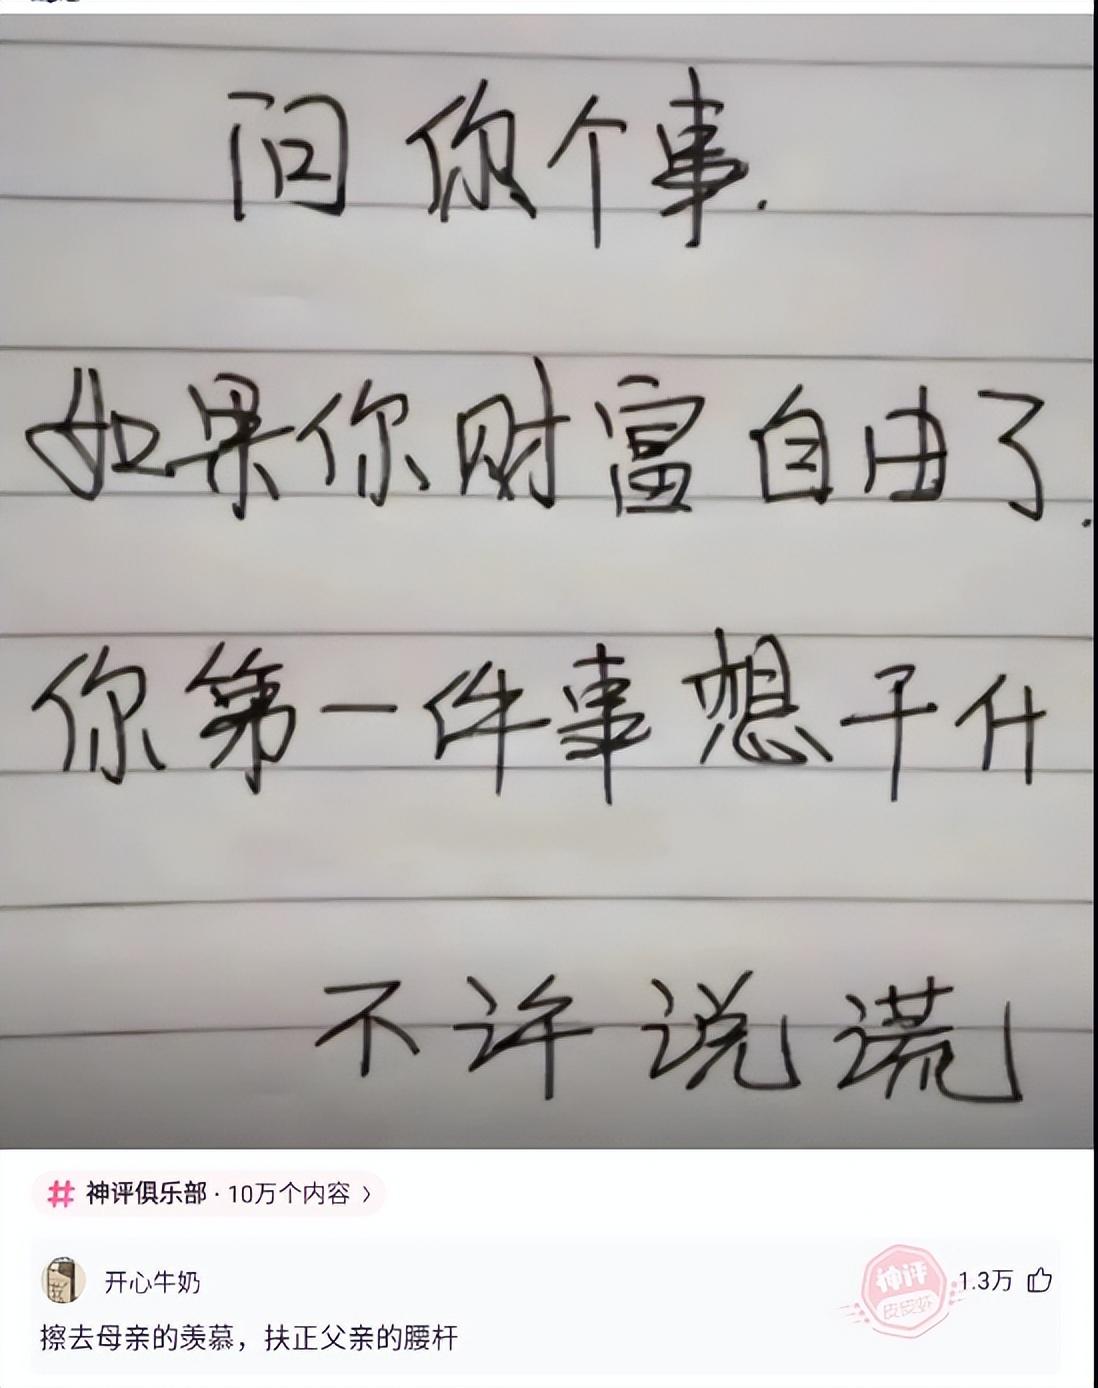 问你个事.
如果你财富自由了.
你第一件事想干什
不许说谎
神评俱乐部 · 10万个内容 >
开心牛奶
神评
皮皮虾
1.3万
擦去母亲的羡慕，扶正父亲的腰杆